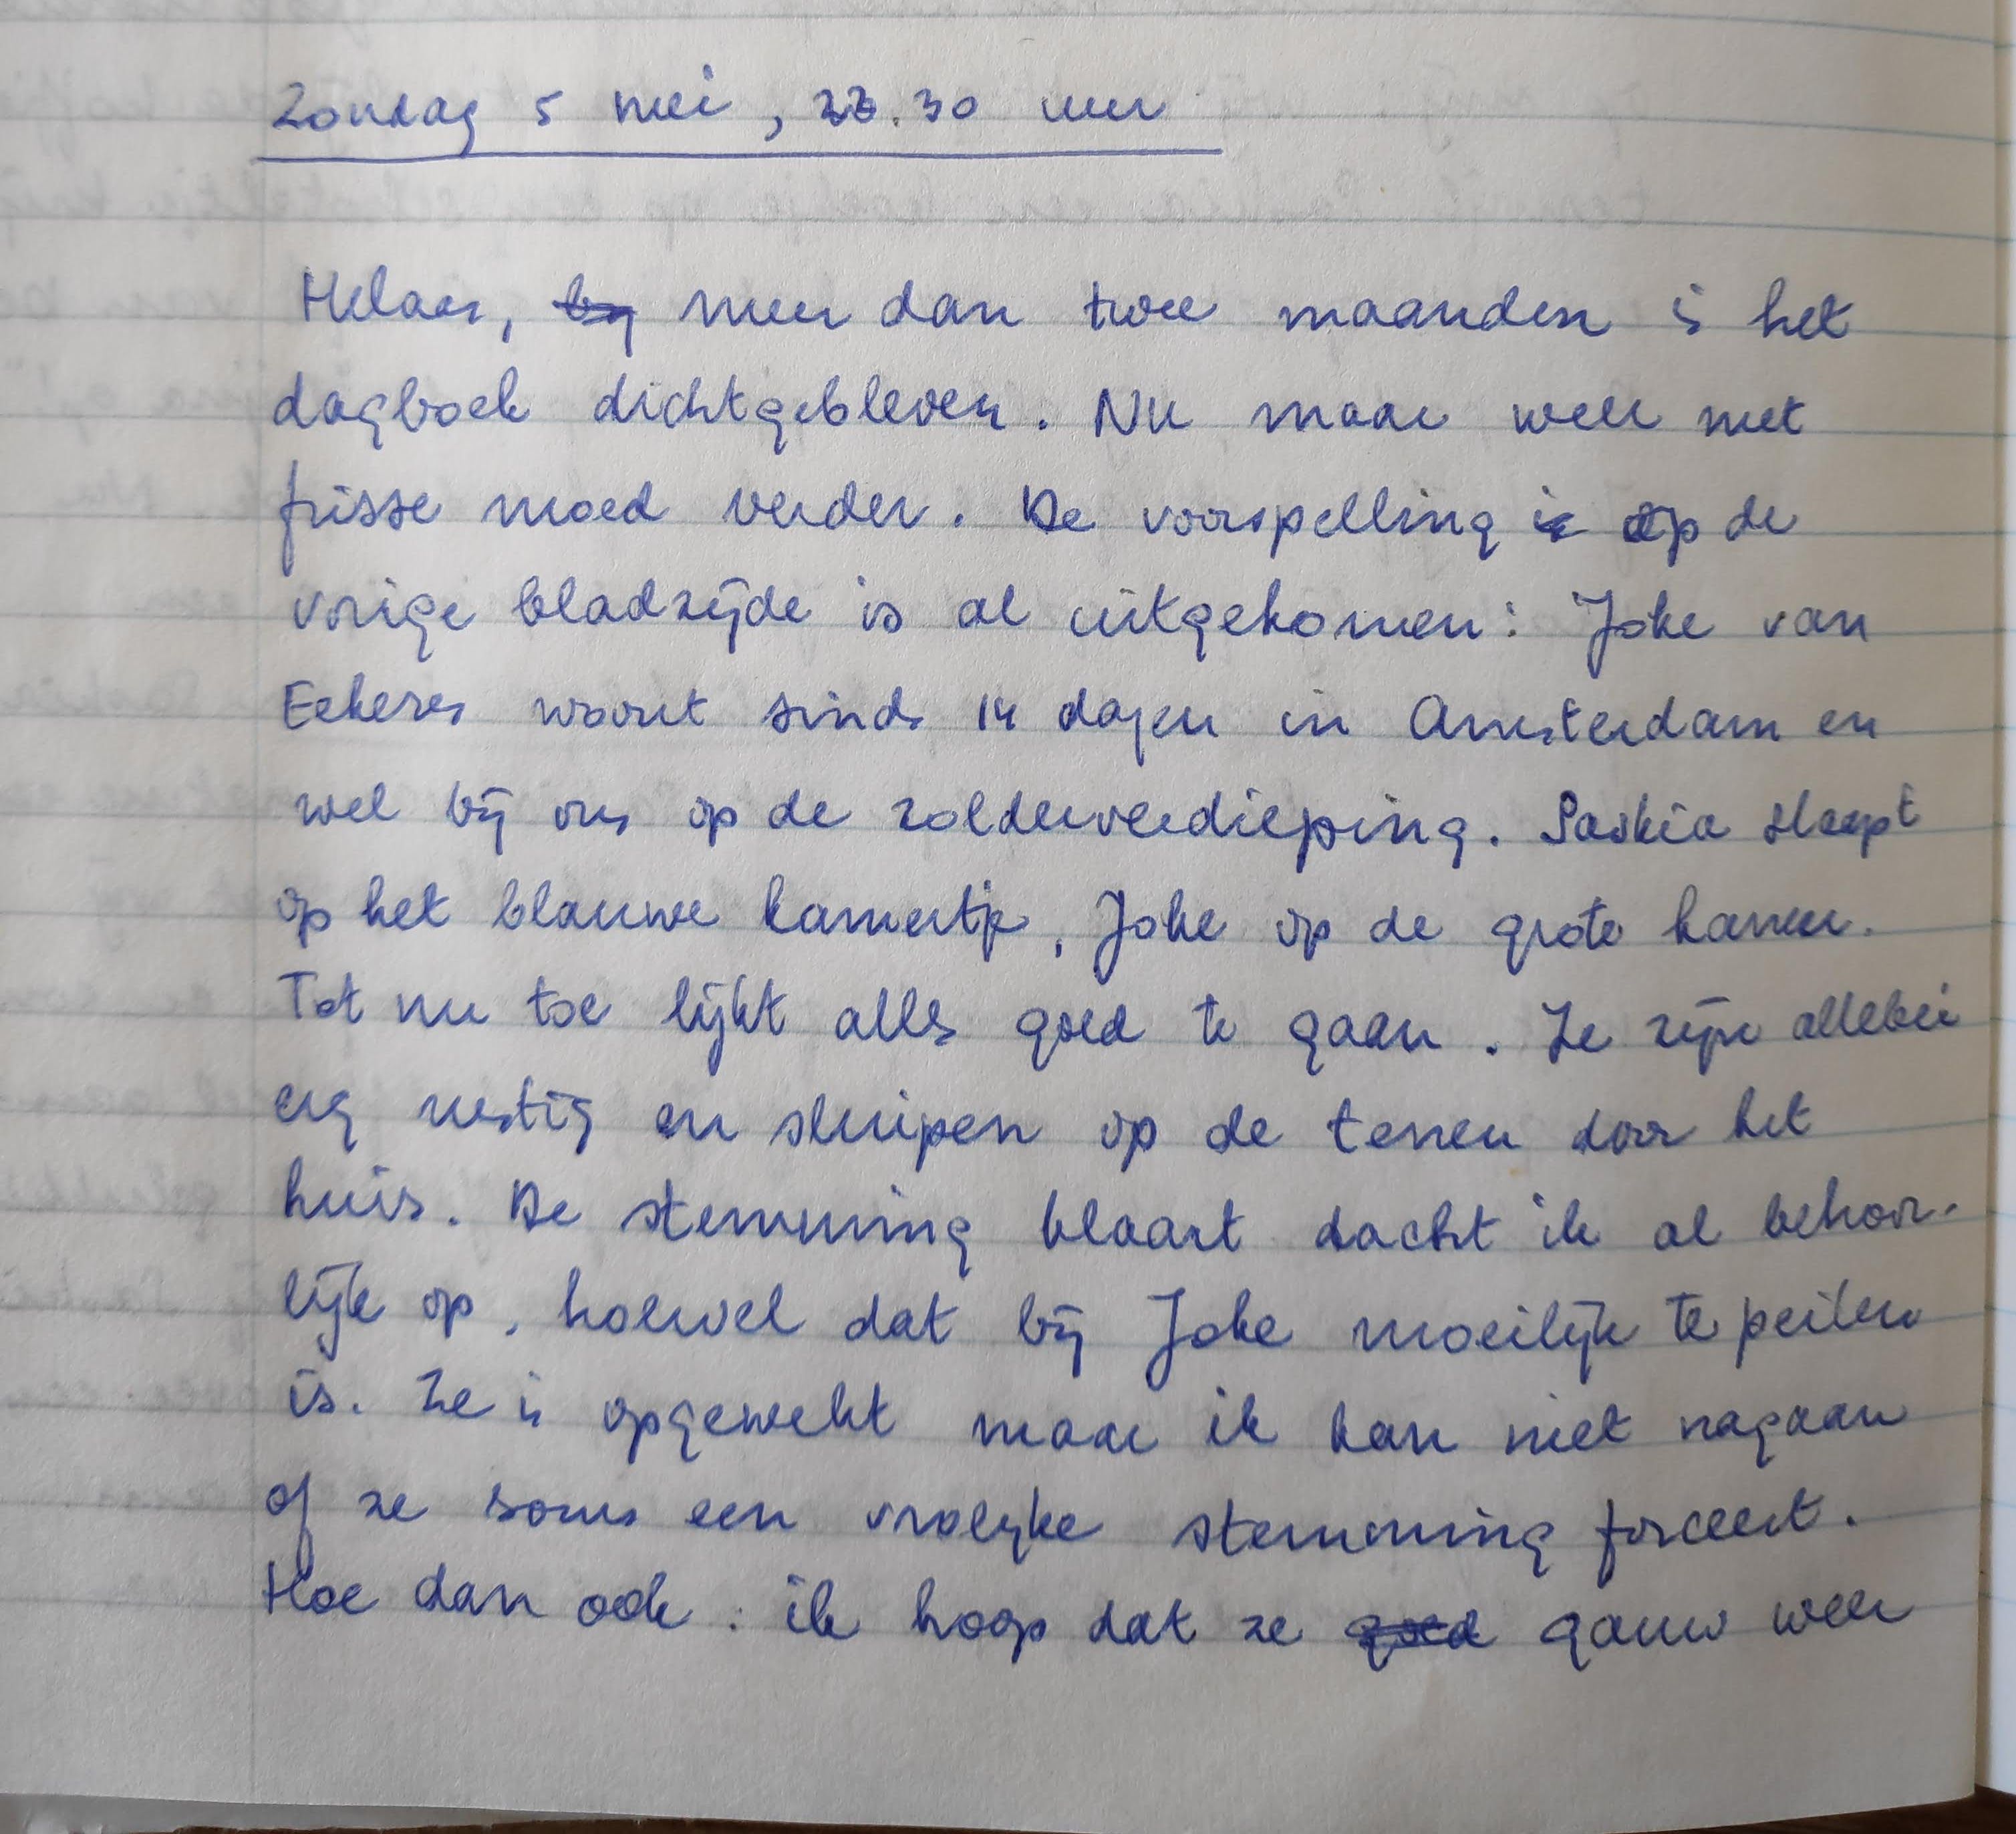 Zondag 5 mei, 23.30 uur
Helaas, meer dan twee maanden is het
dagboek dichtgebleven. Nu maar weer met
frisse moed verder. De voorspelling op de
vorige bladzijde is al uitgekomen: Joke van
Eekeres woont sinds 14 dagen in Amsterdam en
wel bij ons op de zolderverdieping. Saskia slaapt
op het blauwe kamertje, Joke op de grote kamer.
Tot nu toe lijkt alles goed te gaan. Ze zijn allebei
erg rustig en sluipen op de tenen door het
huis. De stemming klaart dacht ik al behoor-
lijk op, hoewel dat bij Joke moeilijk te peilen
is. Ze is opgewekt maar ik kan niet nagaan
of ze soms een vrolijke stemming forceert.
Hoe dan ook: ik hoop dat ze goed gauw weer